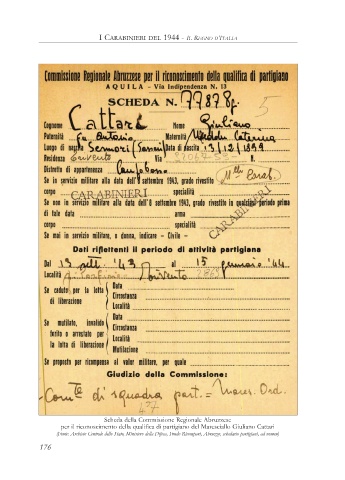 I CARABINIERI DEL 1944 - IL REGNO D'ITALIA
Commissione Regionale Abruzzese per il riconoscimento della qualifica di partigiano
AQUILA - Via Indipendenza N. 13
SCHEDA N. 77878 p. 5
Cognome Cattari Nome Giuliano
Paternità fu Antonio Maternità Caterina
Luogo di nascita Sennori (Sassari) Data di nascita 13/12/1899
Residenza Via N.
Distretto di appartenenza Campobasso
Se in servizio militare alla data dell'8 settembre 1943, grado rivestito M.llo Carab.
corpo CARABINIERI specialità
Se non in servizio militare alla data dell'8 settembre 1943, grado rivestito in qualsiasi periodo prima
di tale data arma CARABINIERI
corpo specialità
Se mai in servizio militare, o donna, indicare - Civile -
Dati riflettenti il periodo di attività partigiana
Dal 13 sett. '43 al 15 gennaio '44
Località
Se caduto per la lotta di liberazione
Data
Circostanza
Località
Se mutilato, invalido ferito o arrestato per la lotta di liberazione
Data
Circostanza
Località
Mutilazione
Se proposto per ricompensa al valor militare, per quale
Giudizio della Commissione:
Com.te di squadra part. = Mares. Ord.
Scheda della Commissione Regionale Abruzzese
per il riconoscimento della qualifica di partigiano del Maresciallo Giuliano Cattari
(Fonte: Archivio Centrale dello Stato, Ministero della Difesa, Fondo Ricompart, Abruzzo, schedario partigiani, ad nomen)
176